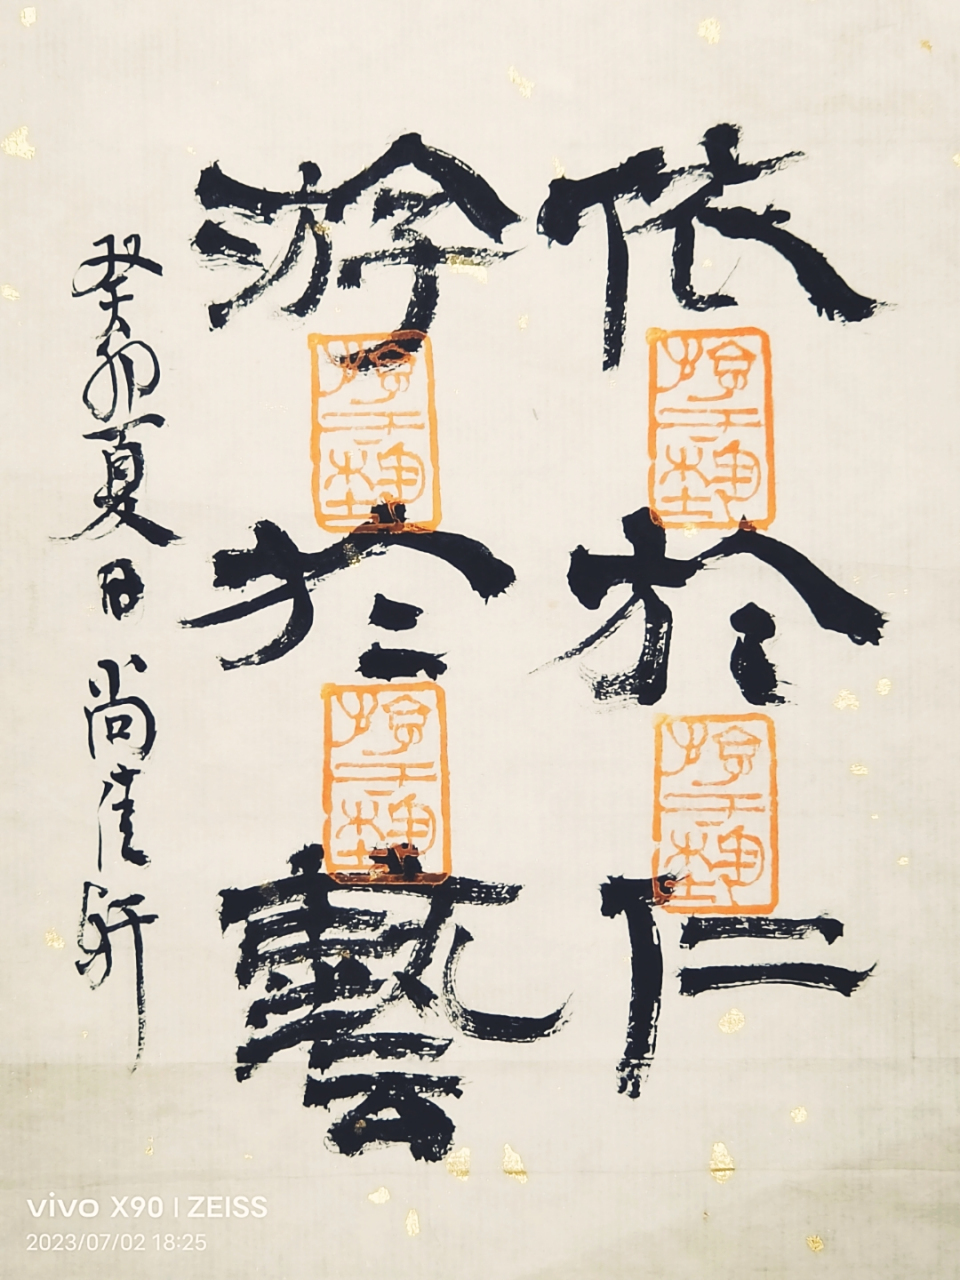 依於仁
游於藝
癸卯夏日尚佳軒
vivo X90 | ZEISS
2023/07/02 18:25